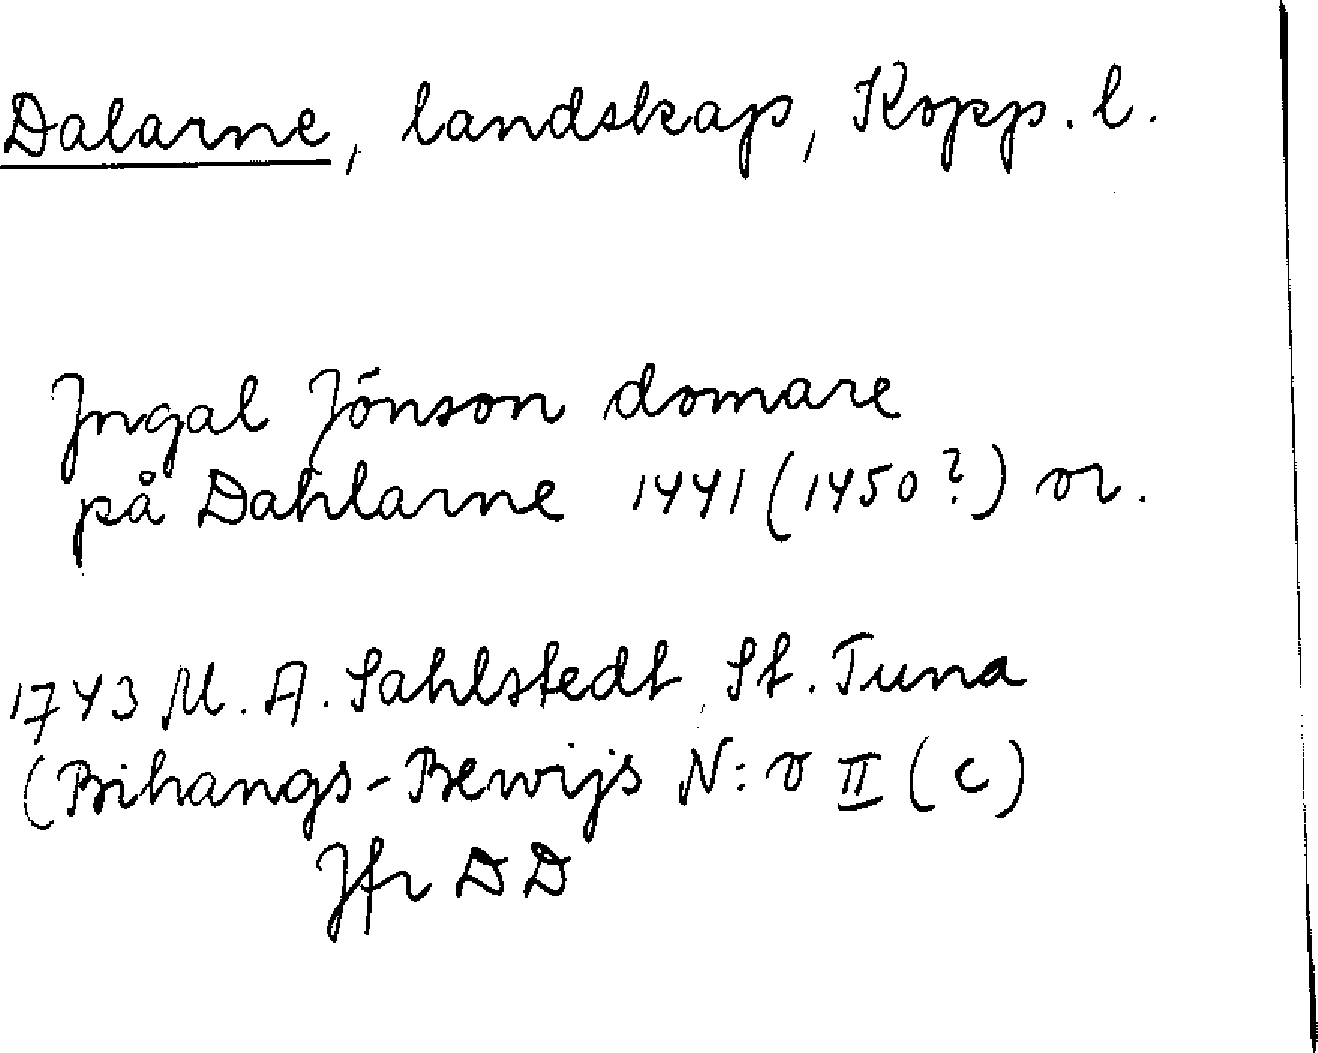 Dalarne, landskap, Kopp. l.
Jngal Jönson domare
på Dahlarne 1441 (1450?) or.
1743 M. A. Sahlstedt, St. Tuna
(Bihangs-Bewijs N: o II (c)
Jfr DD